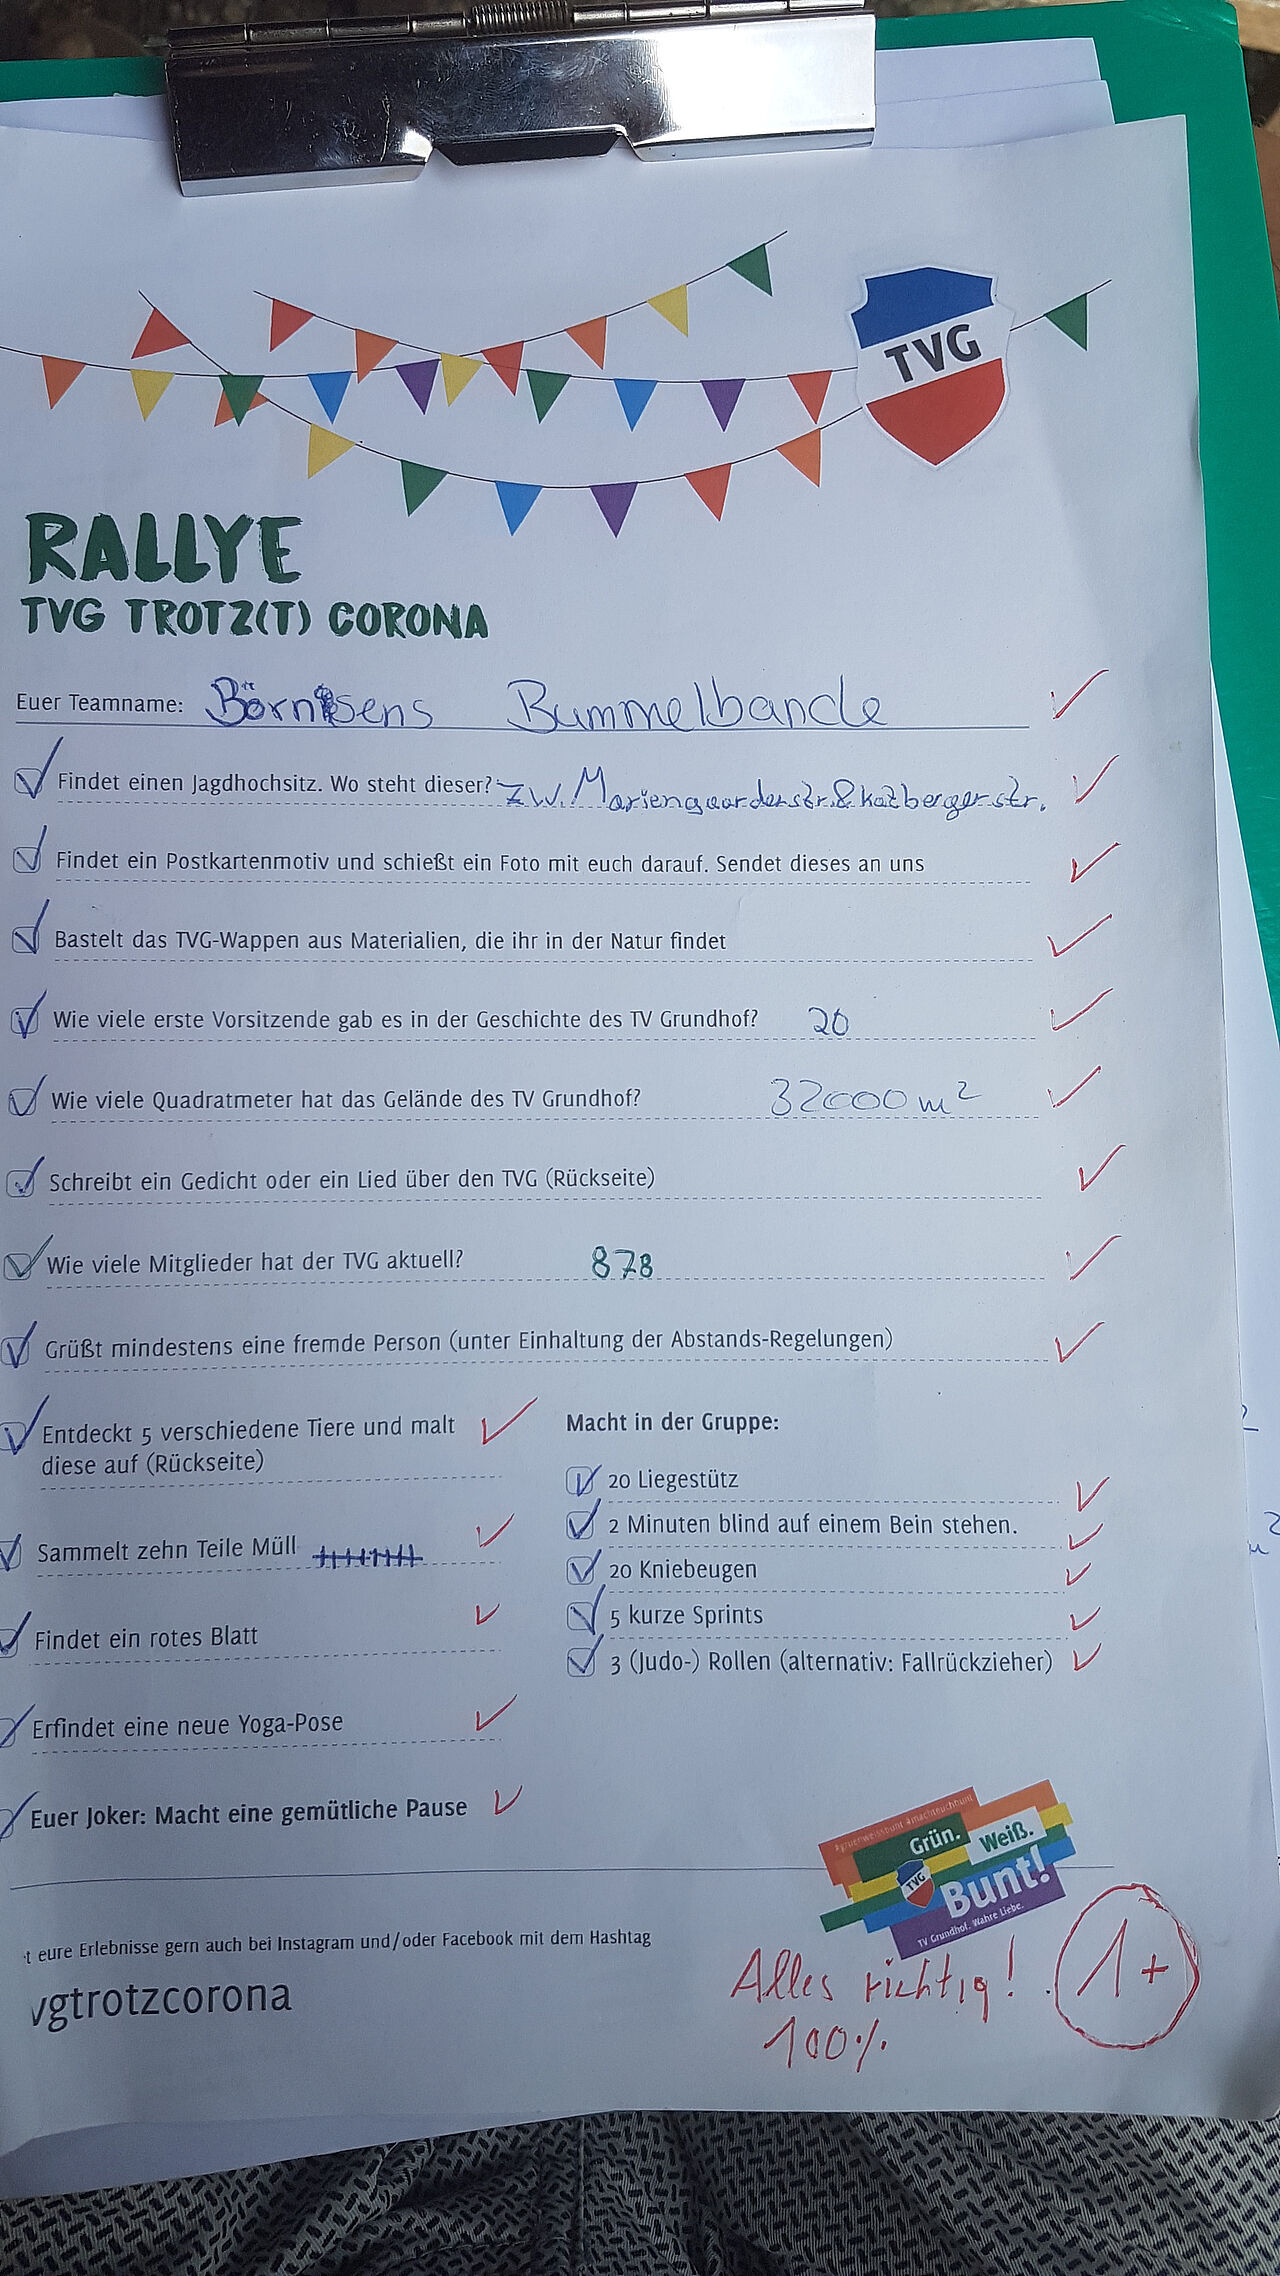 TVG
RALLYE
TVG TROTZ(T) CORONA
Euer Teamname: Börnsens Bummelbande
Findet einen Jagdhochsitz. Wo steht dieser? zw. Mariengaarderstr. & Katzbergerstr.
Findet ein Postkartenmotiv und schießt ein Foto mit euch darauf. Sendet dieses an uns
Bastelt das TVG-Wappen aus Materialien, die ihr in der Natur findet
Wie viele erste Vorsitzende gab es in der Geschichte des TV Grundhof? 20
Wie viele Quadratmeter hat das Gelände des TV Grundhof? 32000 m²
Schreibt ein Gedicht oder ein Lied über den TVG (Rückseite)
Wie viele Mitglieder hat der TVG aktuell? 878
Grüßt mindestens eine fremde Person (unter Einhaltung der Abstands-Regelungen)
Entdeckt 5 verschiedene Tiere und malt
diese auf (Rückseite)
Sammelt zehn Teile Müll
Findet ein rotes Blatt
Erfindet eine neue Yoga-Pose
Euer Joker: Macht eine gemütliche Pause
Macht in der Gruppe:
20 Liegestütz
2 Minuten blind auf einem Bein stehen.
20 Kniebeugen
5 kurze Sprints
3 (Judo-) Rollen (alternativ: Fallrückzieher)
#gruenweissbunt #machteuchbunt
Grün. Weiß.
TVG Bunt!
TV Grundhof. Wahre Liebe.
t eure Erlebnisse gern auch bei Instagram und/oder Facebook mit dem Hashtag
vgtrotzcorona
Alles richtig! 1+
100%